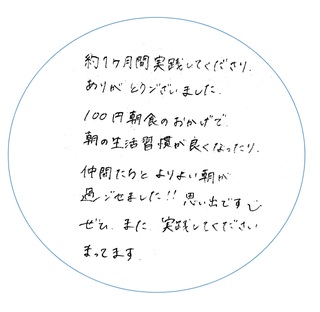 約1ヶ月間実践してくださり、
ありがとうございました。
100円朝食のおかげで、
朝の生活習慣が良くなったり、
仲間たちとよりよい朝が
過ごせました!! 思い出です
ぜひ、また、実践してください
まってます。